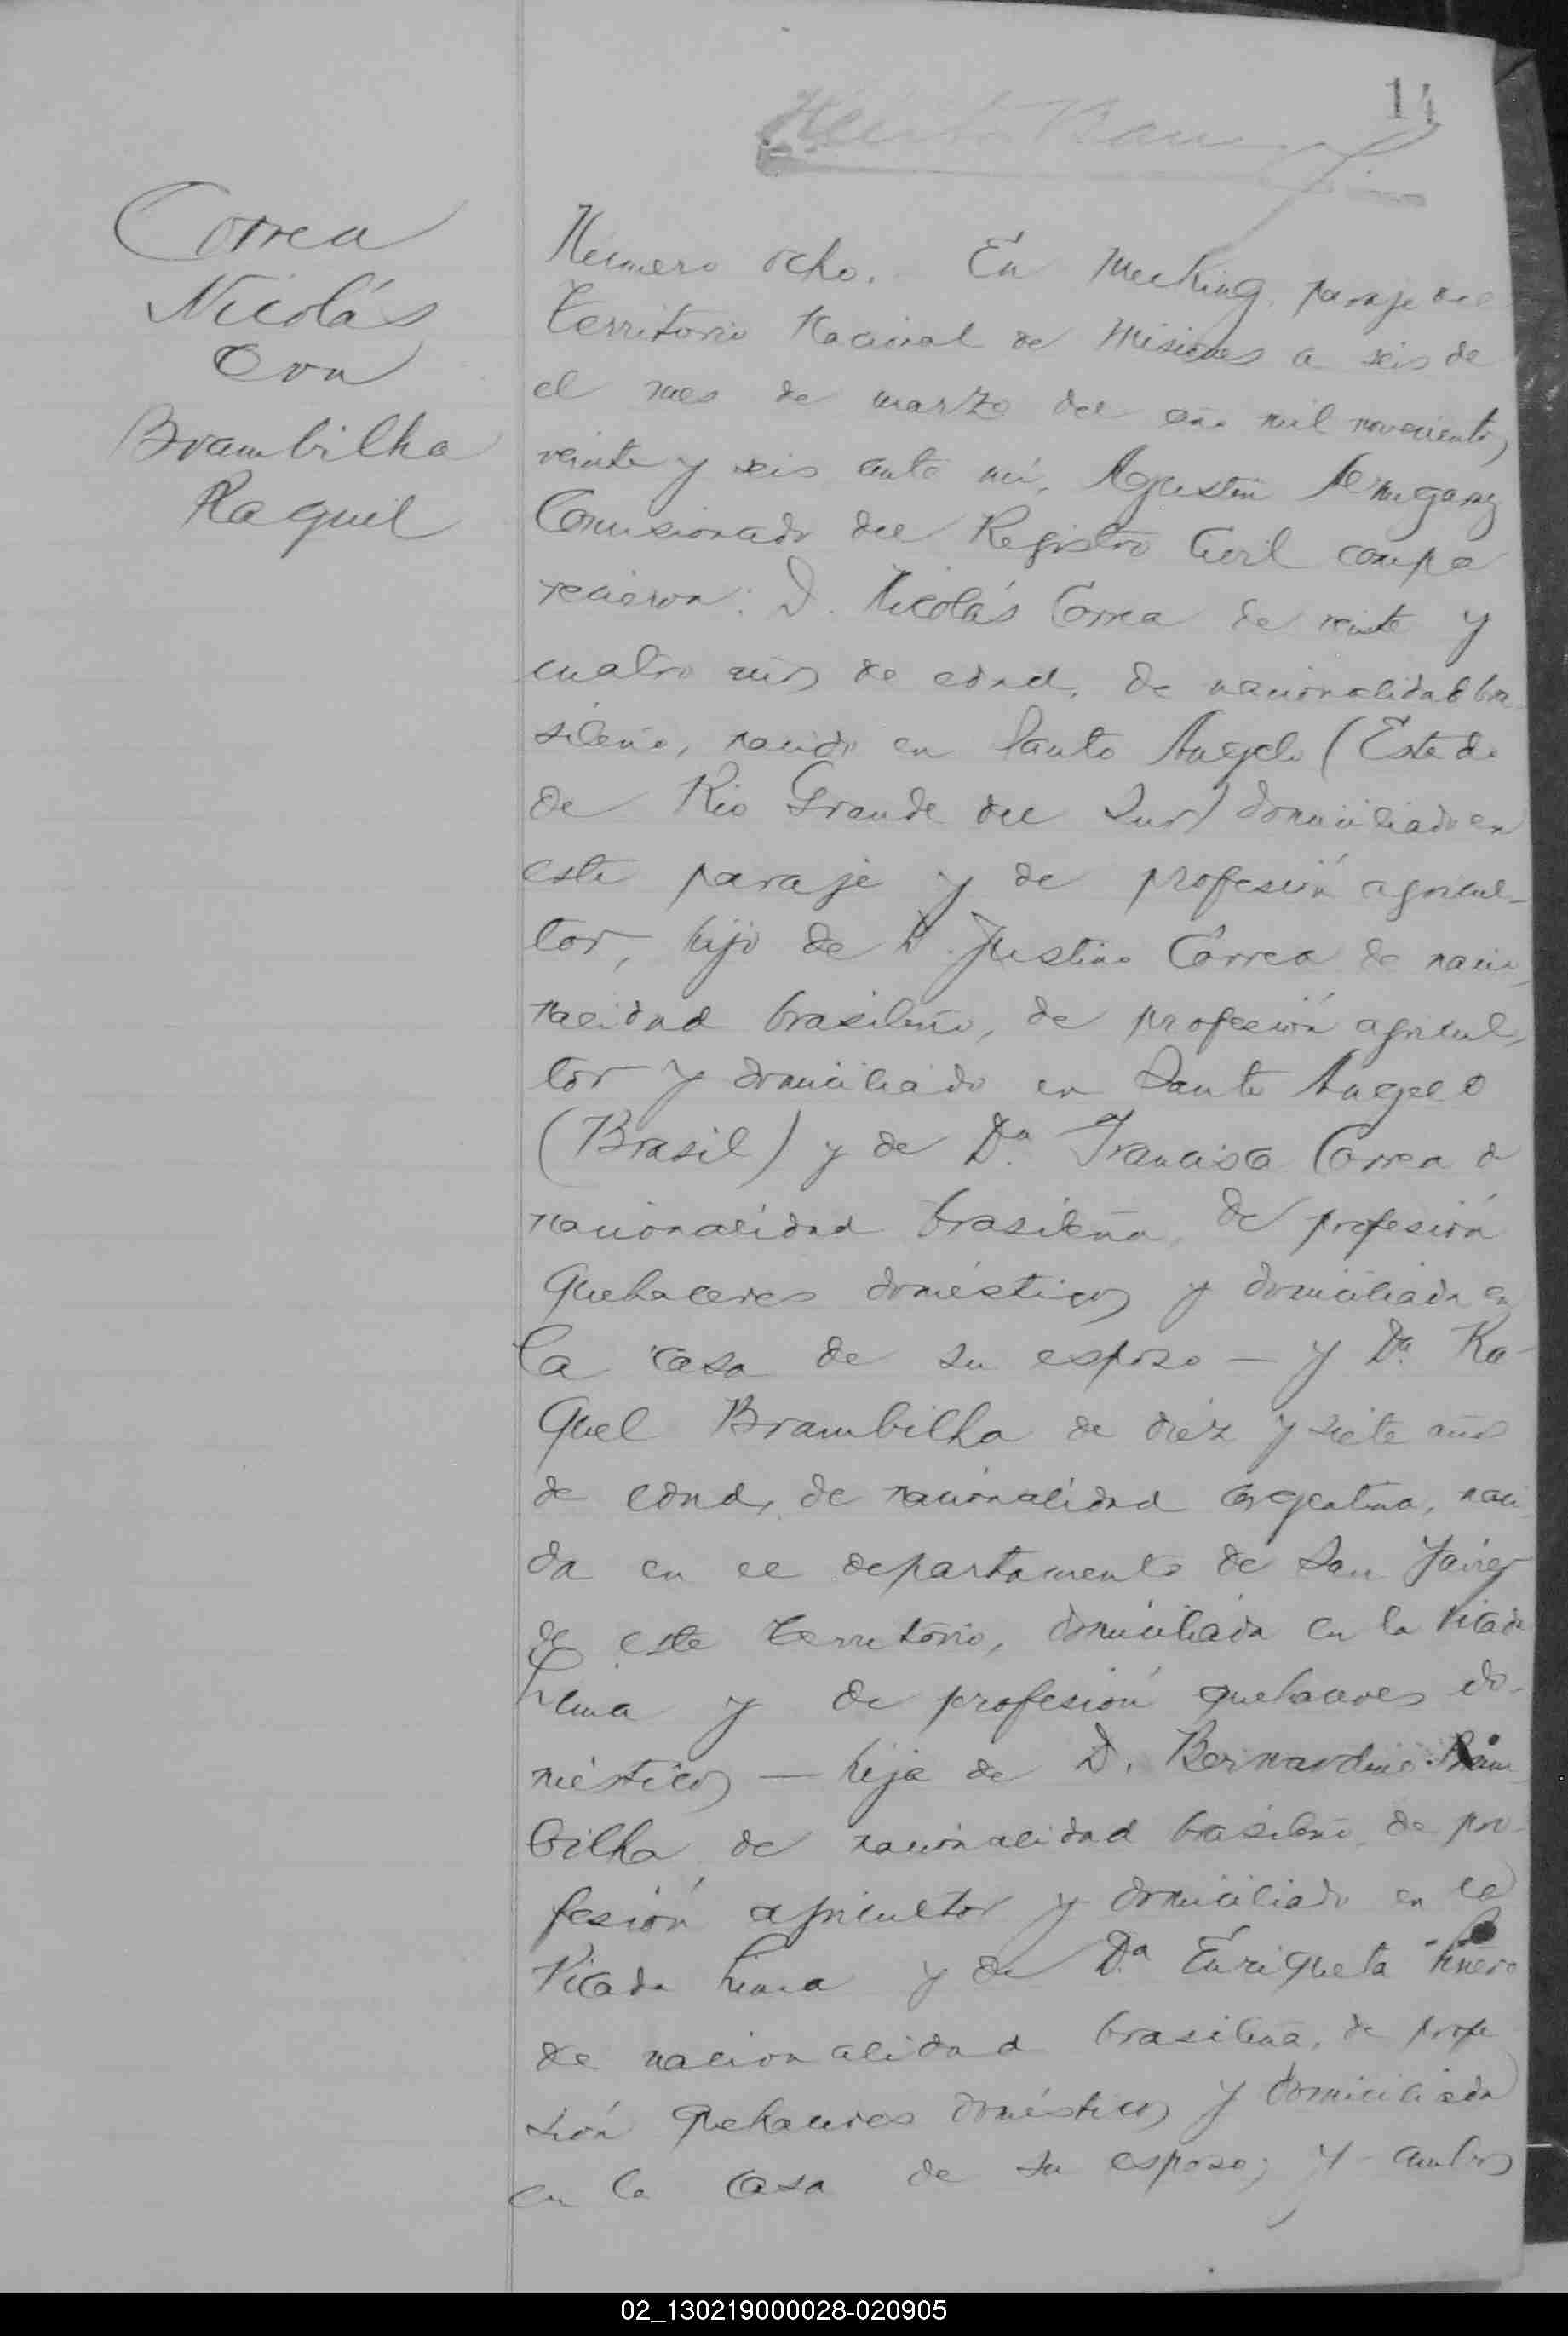 14
Correa
Nicolás
Con
Brambilha
Raquel
Número ocho. En Mecking, paraje del
Territorio Nacional de Misiones a seis de
el mes de marzo del año mil novecientos
veinte y seis ante mí, Agustín
Comisionado del Registro Civil compa
recieron: D. Nicolás Correa de veinte y
cuatro años de edad, de nacionalidad bra
sileño, nacido en Santo Angelo (Estado
de Rio Grande del Sur) domiciliado en
este paraje y de profesión agricul-
tor, hijo de D. Justino Correa de nacio
nalidad brasileño, de profesión agricul,
tor y domiciliado en Santo Angelo
(Brasil) y de Dª. Francisca Correa de
nacionalidad brasileña, de profesión
quehaceres domésticos y domiciliada en
la casa de su esposo — y Dª. Ra-
quel Brambilha de diez y siete años
de edad, de nacionalidad argentina, naci
da en el departamento de San Javier
de este Territorio, domiciliada en la Picada
Lima y de profesión quehaceres do-
mésticos — hija de D. Bernardino Bram
bilha, de nacionalidad brasileño, de pro-
fesión agricultor y domiciliado en la
Picada Lima y de Dª Enriqueta
de nacionalidad brasileña, de profe
sión quehaceres domésticos y domiciliada
en la casa de su esposo; y ambos
02_130219000028-020905